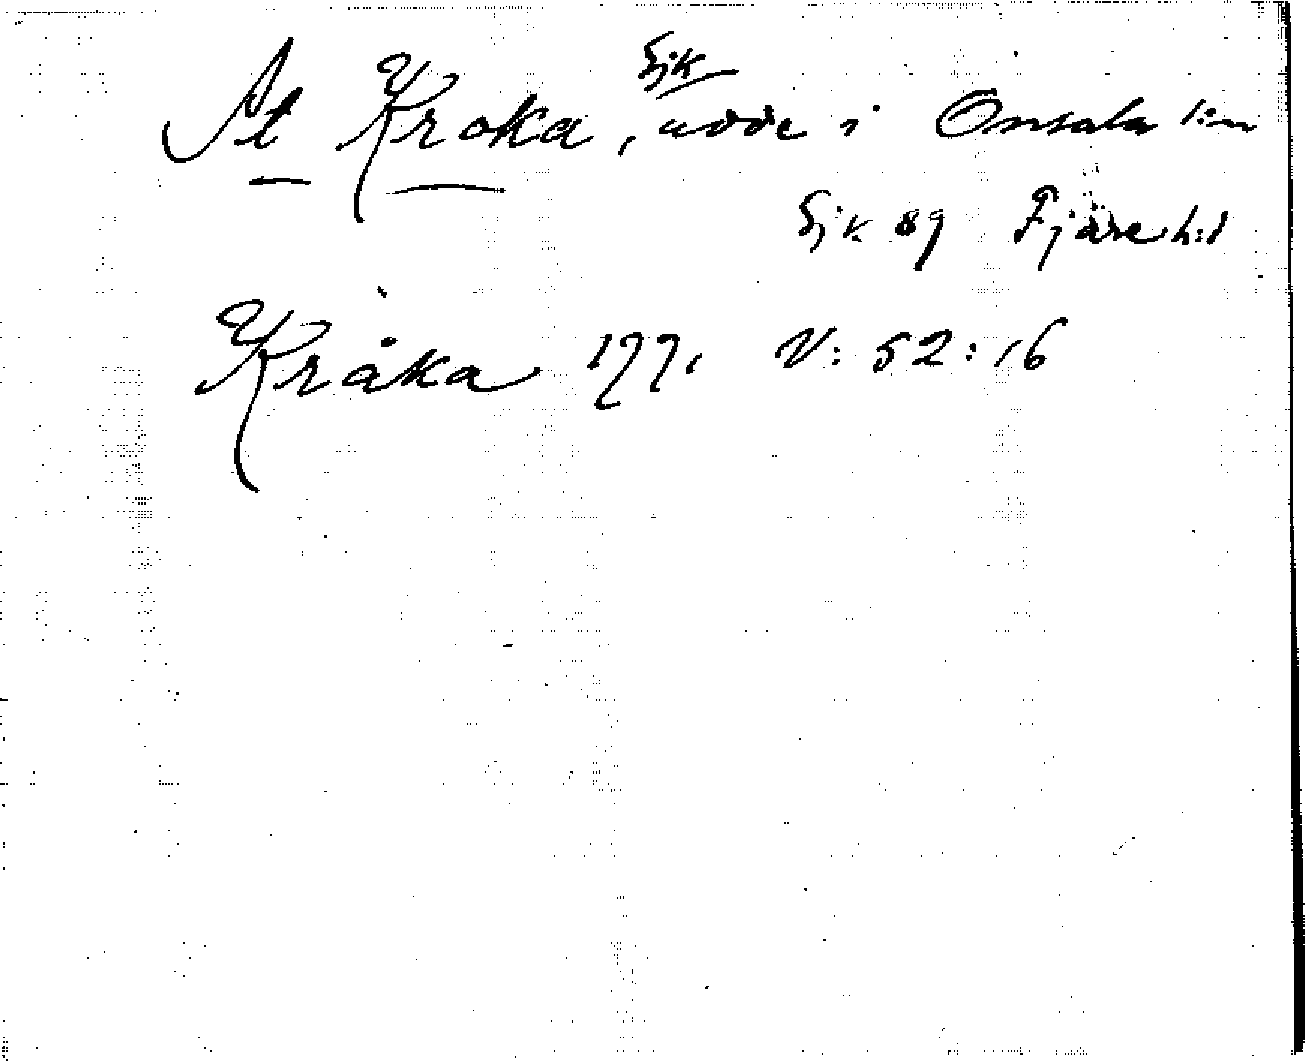 Sjk
St Kroka, udde i Onsala s:n
Sjk 89 Fjäre h:d
Kråka 1771 V: 52:16